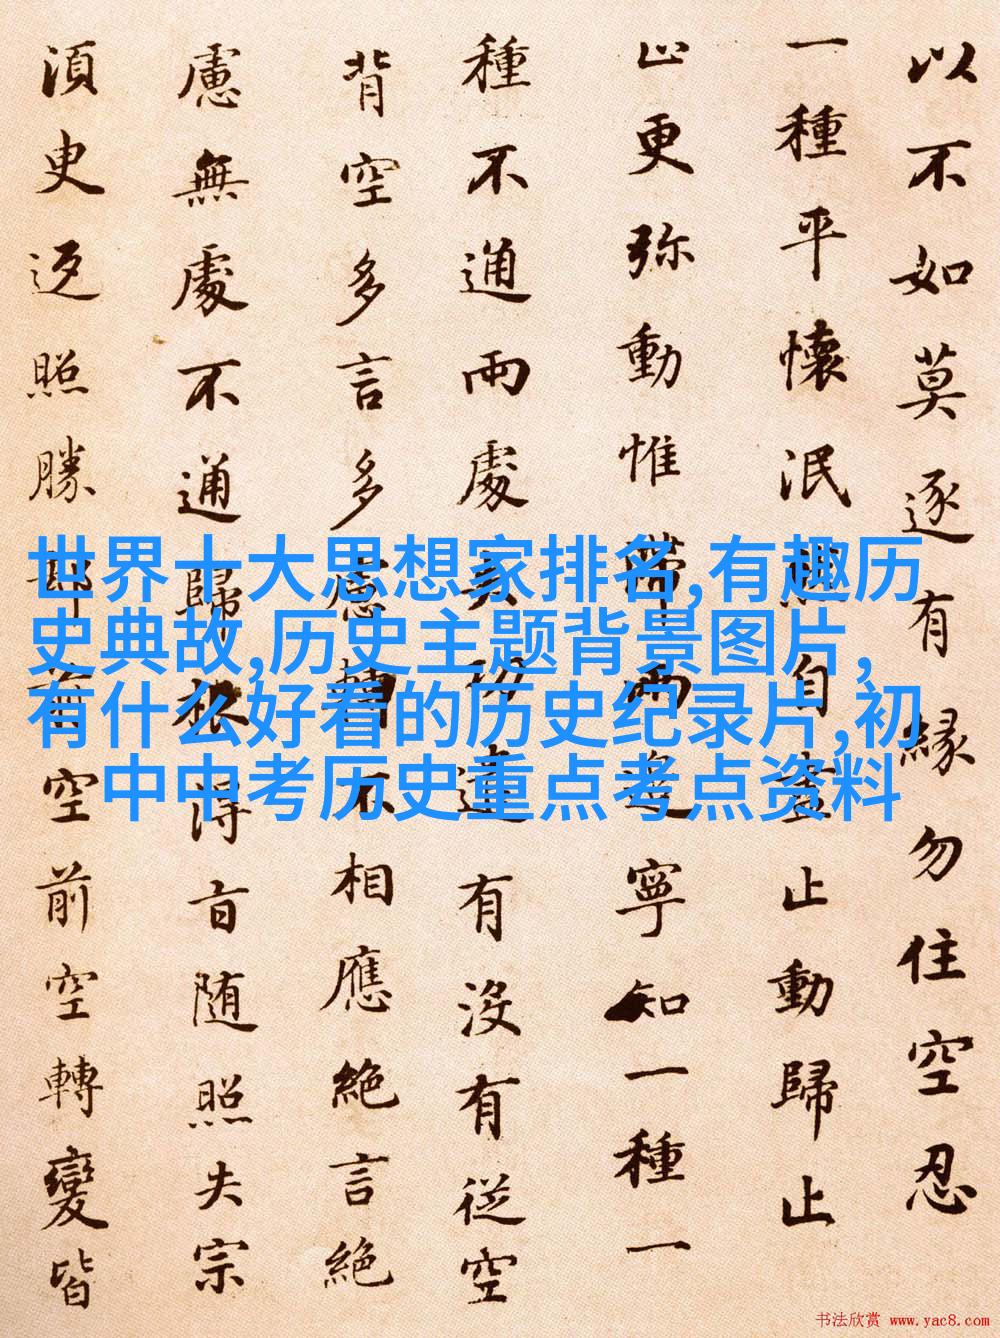 以不如莫逐有緣勿住空忍
一種平懷泯自盡止動歸止
止更弥動惟滯兩邊寧知一種一
種不通兩處失功遣有沒有從空
背空多言多慮轉不相應絕言絕
慮無處不通歸根得旨随照失宗
須臾返照勝却前空前空轉變皆
世界十大思想家排名,有趣历
史典故,历史主题背景图片,
有什么好看的历史纪录片,初
中中考历史重点考点资料
书法欣赏 www.yac8.com